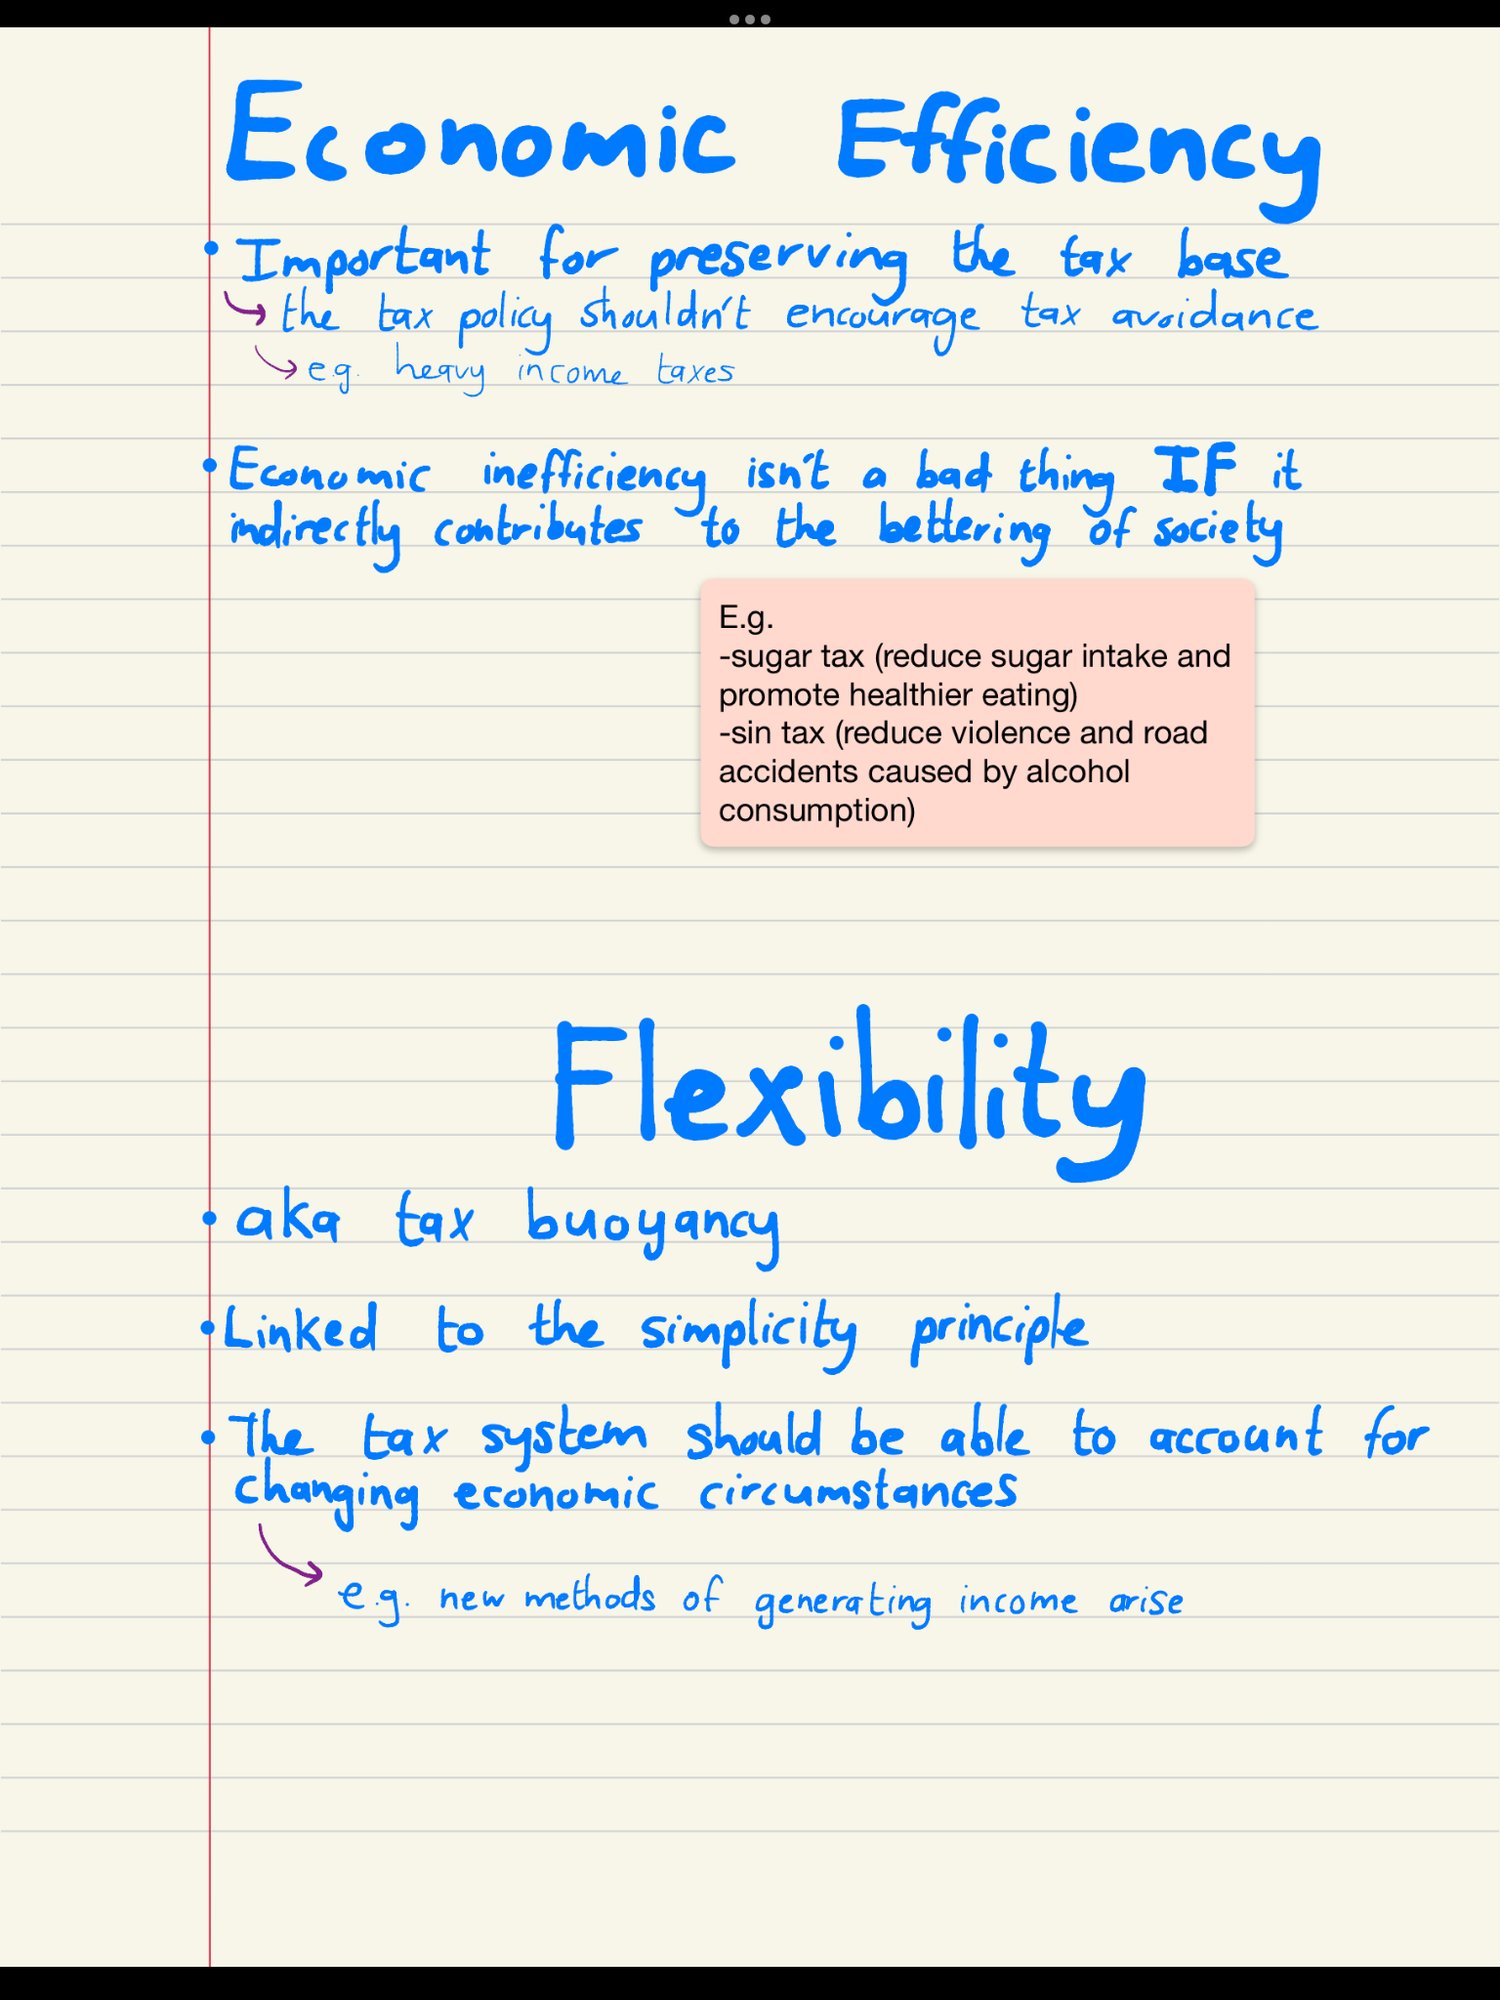 Economic Efficiency
• Important for preserving the tax base
↳ the tax policy shouldn't encourage tax avoidance
↳ e.g. heavy income taxes
• Economic inefficiency isn't a bad thing IF it
indirectly contributes to the bettering of society
E.g.
-sugar tax (reduce sugar intake and
promote healthier eating)
-sin tax (reduce violence and road
accidents caused by alcohol
consumption)
Flexibility
• aka tax buoyancy
• Linked to the simplicity principle
• The tax system should be able to account for
changing economic circumstances
↳ e.g. new methods of generating income arise